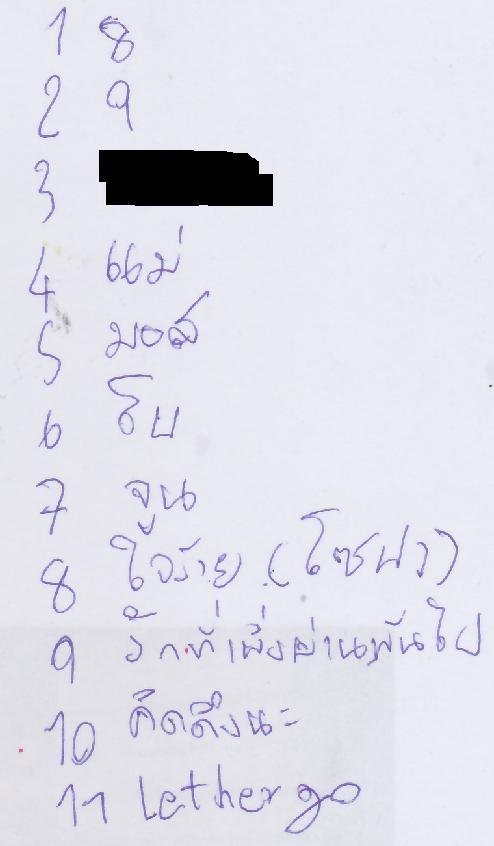 1 8
2 9
3
4 แม่
5 มอส
6 โบ
7 จูน
8 ใจร้าย (โซฟา)
9 รักที่เพิ่งผ่านพ้นไป
10 คิดถึงนะ
11 Let her go